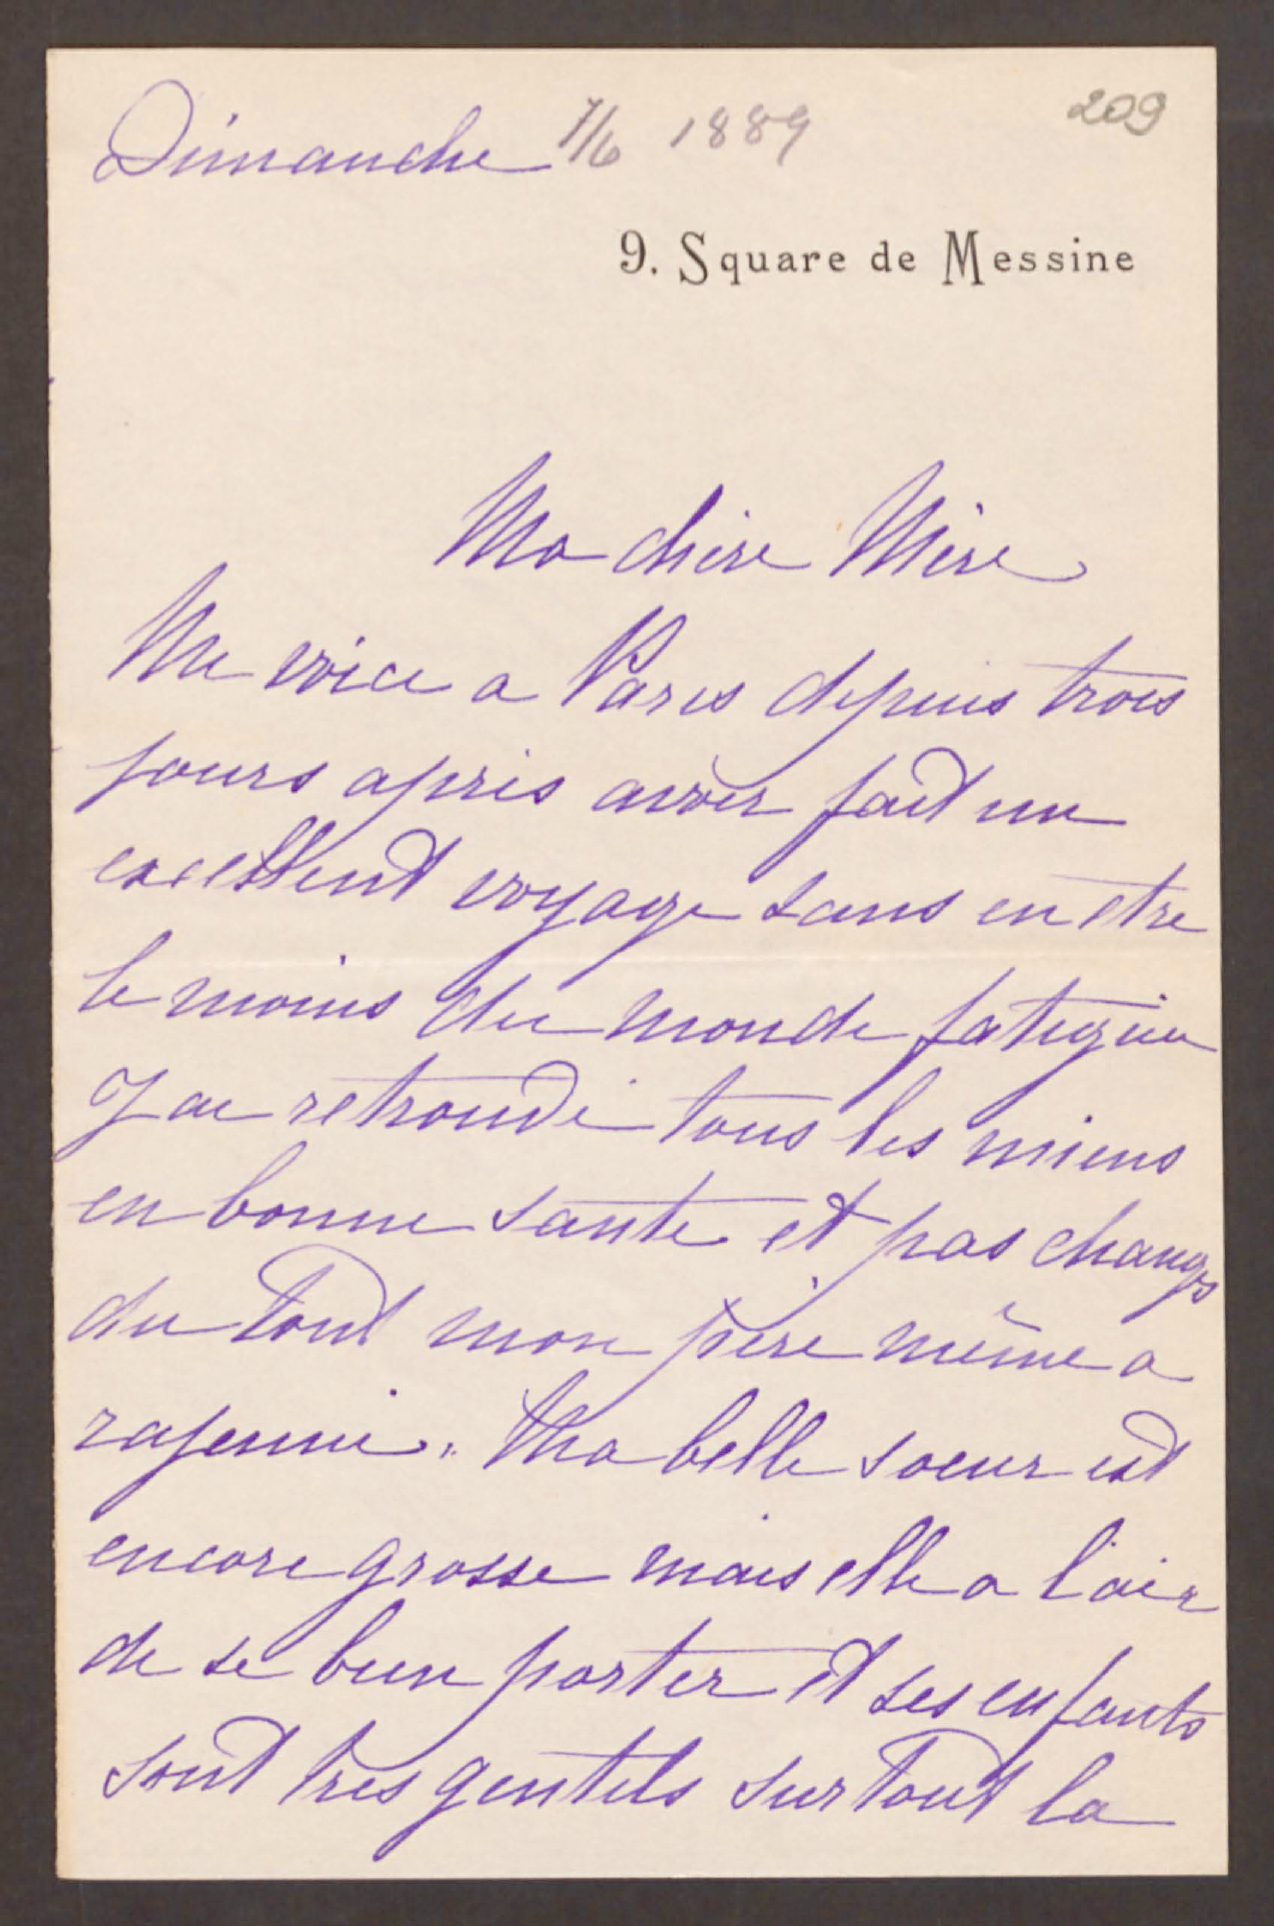 Dimanche 7/6 1889
209
9. Square de Messine
Ma chère Mère
Me voici a Paris depuis trois
jours après avoir fait un
excellent voyage sans en etre
le moins du monde fatiguée
J ai retrouvé tous les miens
en bonne sante et pas changés
du tout mon père même a
rajeuni. Ma belle soeur est
encore grosse mais elle a l'air
de se bien porter et ses enfants
sont très gentils surtout la